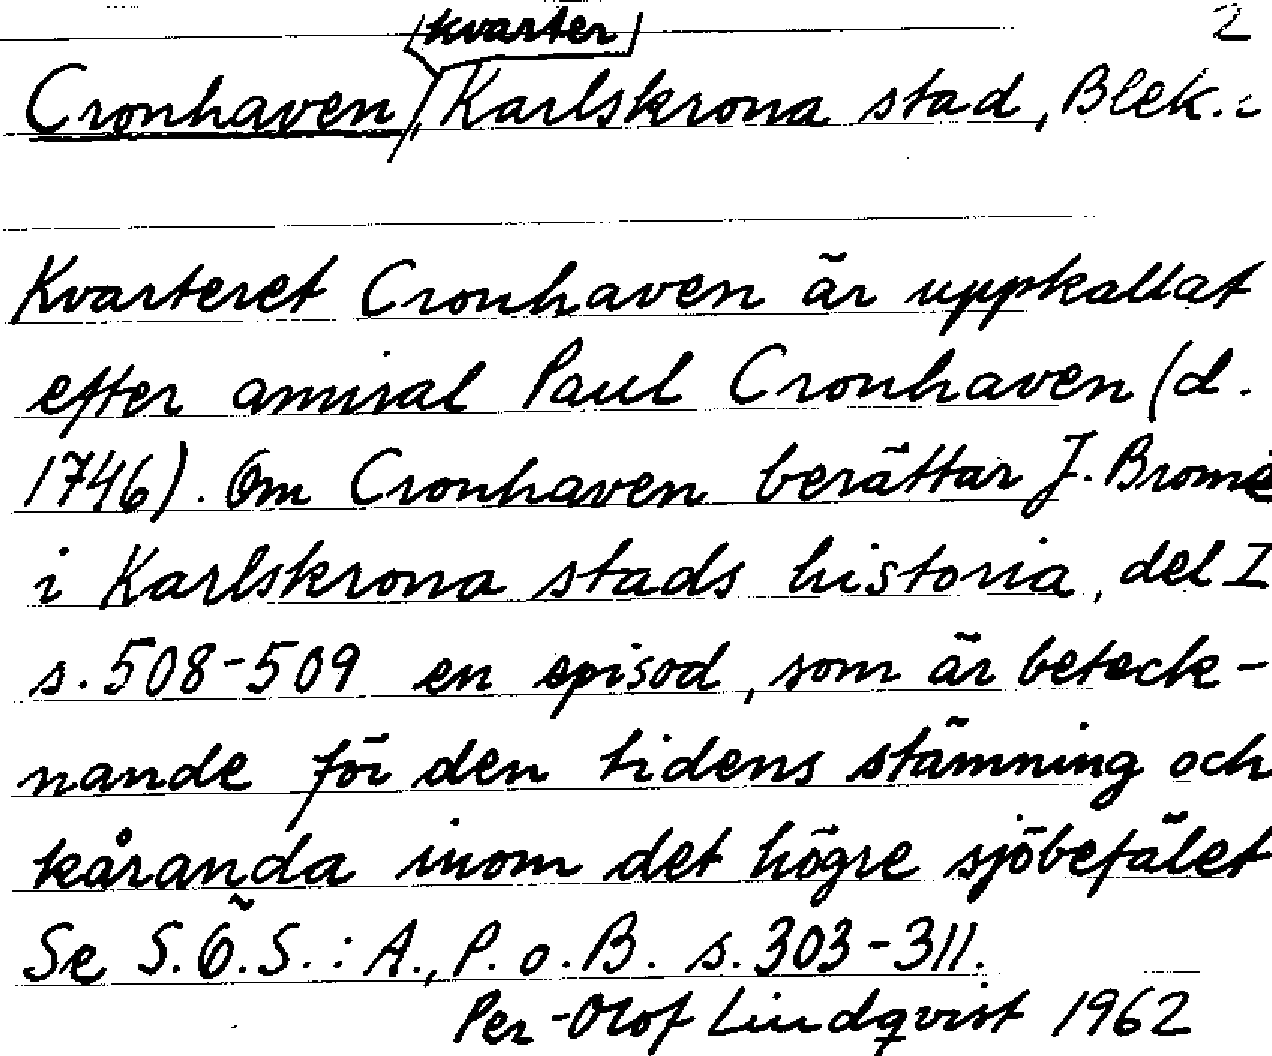 2
kvarter
Cronhaven, Karlskrona stad, Blek.:
Kvarteret Cronhaven är uppkallat
efter amiral Paul Cronhaven (d.
1746). Om Cronhaven berättar J. Bromé
i Karlskrona stads historia, del I
s. 508-509 en episod, som är beteck-
nande för den tidens stämning och
kåranda inom det högre sjöbefälet
Se S.Ö.S.: A., P. o. B. s. 303-311.
Per-Olof Lindqvist 1962